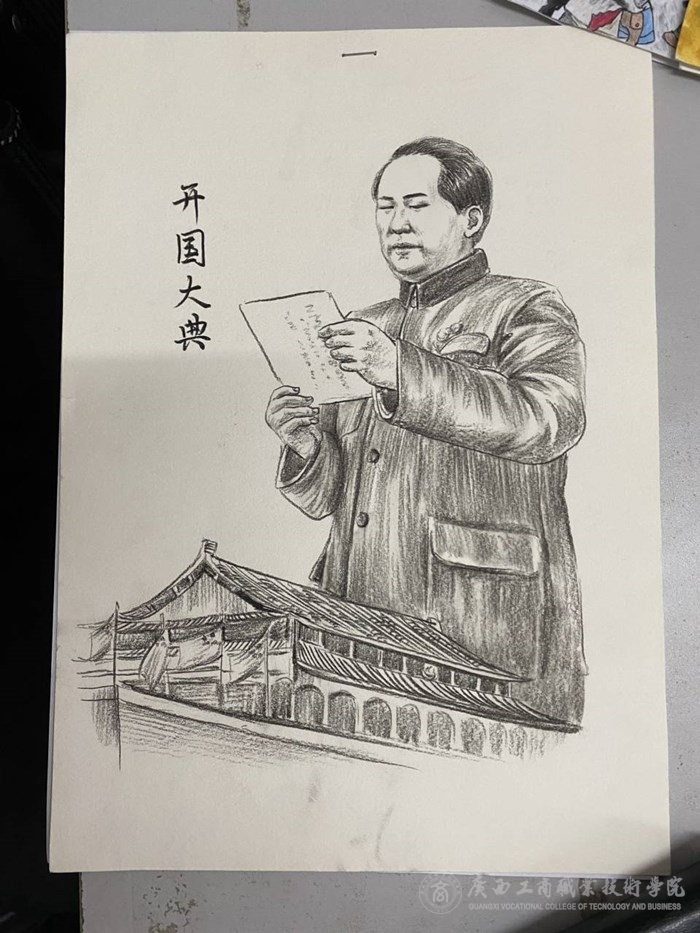 开国大典
廣西工商職業技術學院
GUANGXI VOCATIONAL COLLEGE OF TECNOLOGY AND BUSINESS